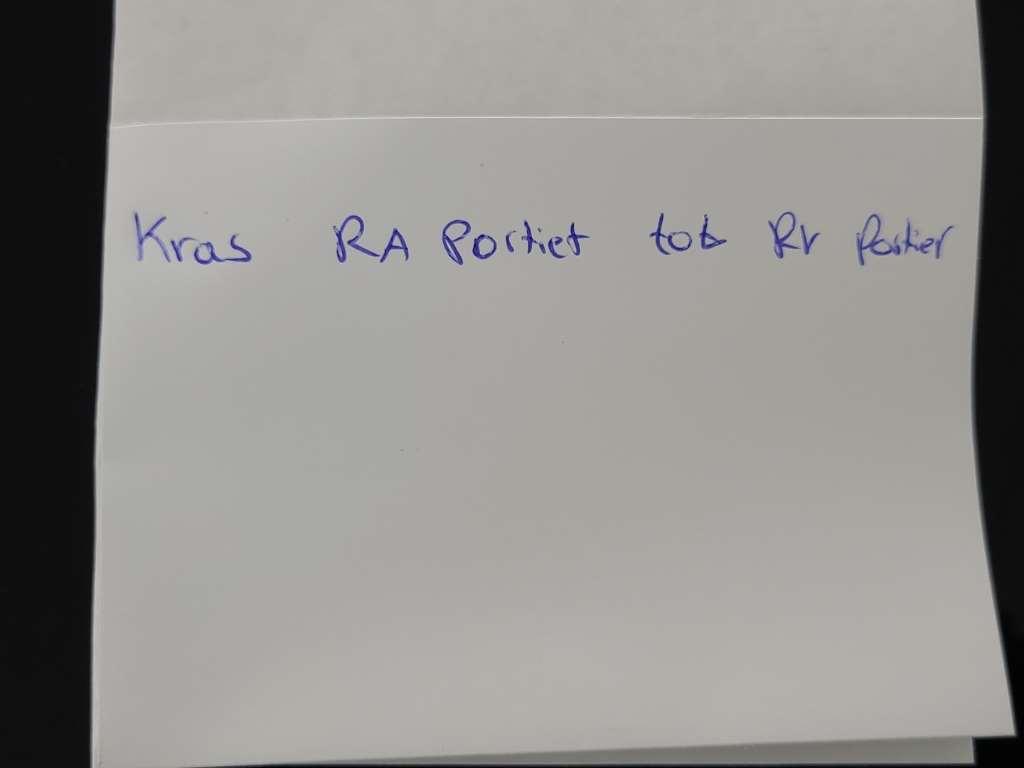 Kras RA Portier tot RV Portier